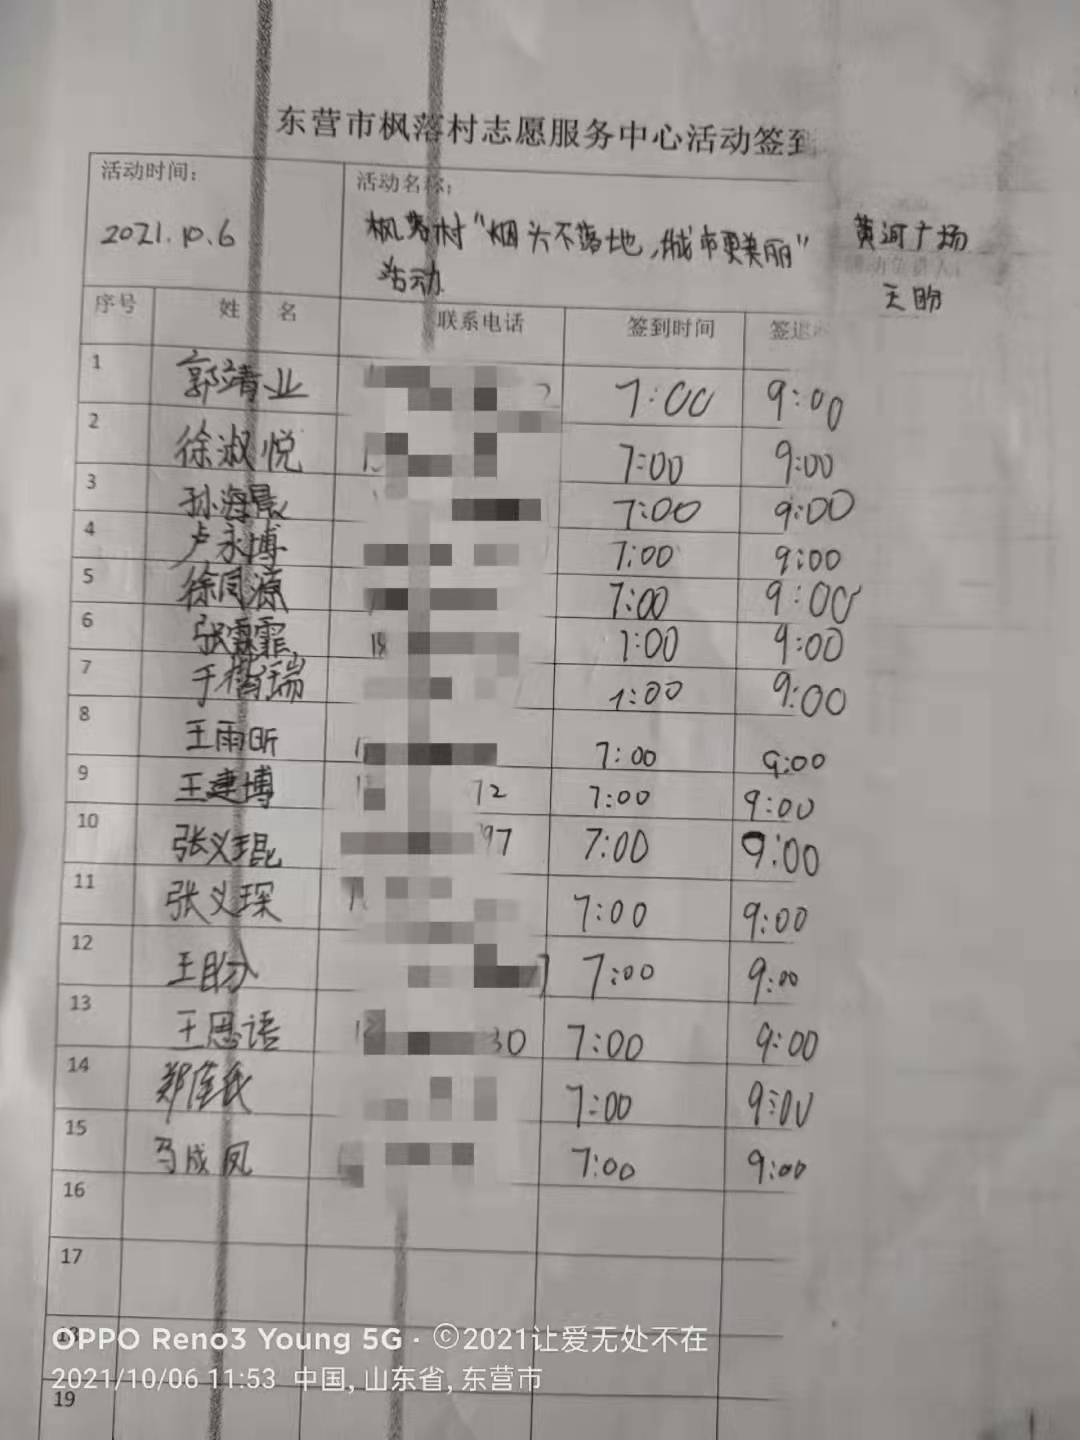 东营市枫落村志愿服务中心活动签到
活动时间： 活动名称：
2021.10.6 枫落村“烟头不落地,城市更美丽” 黄河广场
活动 王盼
序号 姓 名 联系电话 签到时间 签退
1 郭靖业 7:00 9:00
2 徐淑悦 7:00 9:00
3 孙海晨 7:00 9:00
4 卢永博 7:00 9:00
5 徐同源 7:00 9:00
6 张霖霏 18 7:00 9:00
7 于楷瑞 7:00 9:00
8 王雨昕 7:00 9:00
9 王建博 72 7:00 9:00
10 张义琨 97 7:00 9:00
11 张义琛 7:00 9:00
12 王盼 7:00 9:00
13 王思语 30 7:00 9:00
14 郑佳 7:00 9:00
15 马成凤 7:00 9:00
16
17
18
OPPO Reno3 Young 5G · ©2021让爱无处不在
2021/10/06 11:53 中国, 山东省, 东营市
19